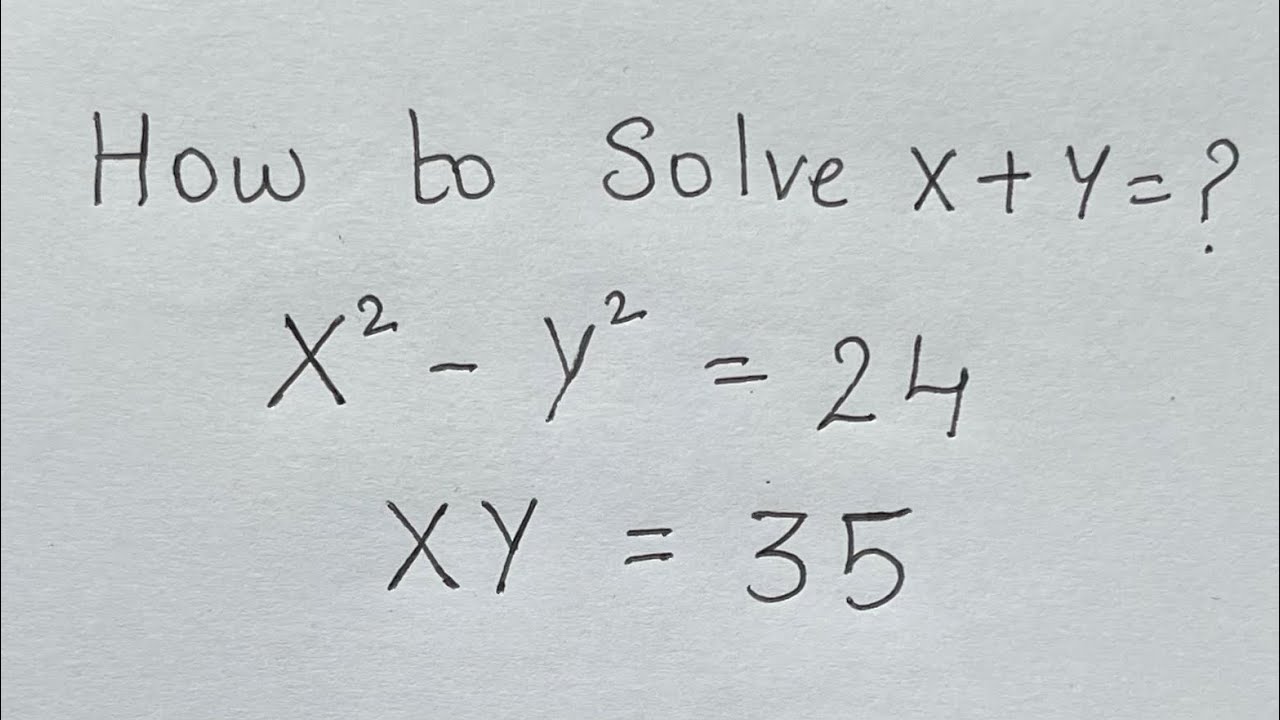 How to Solve X + Y = ?
X² - Y² = 24
XY = 35